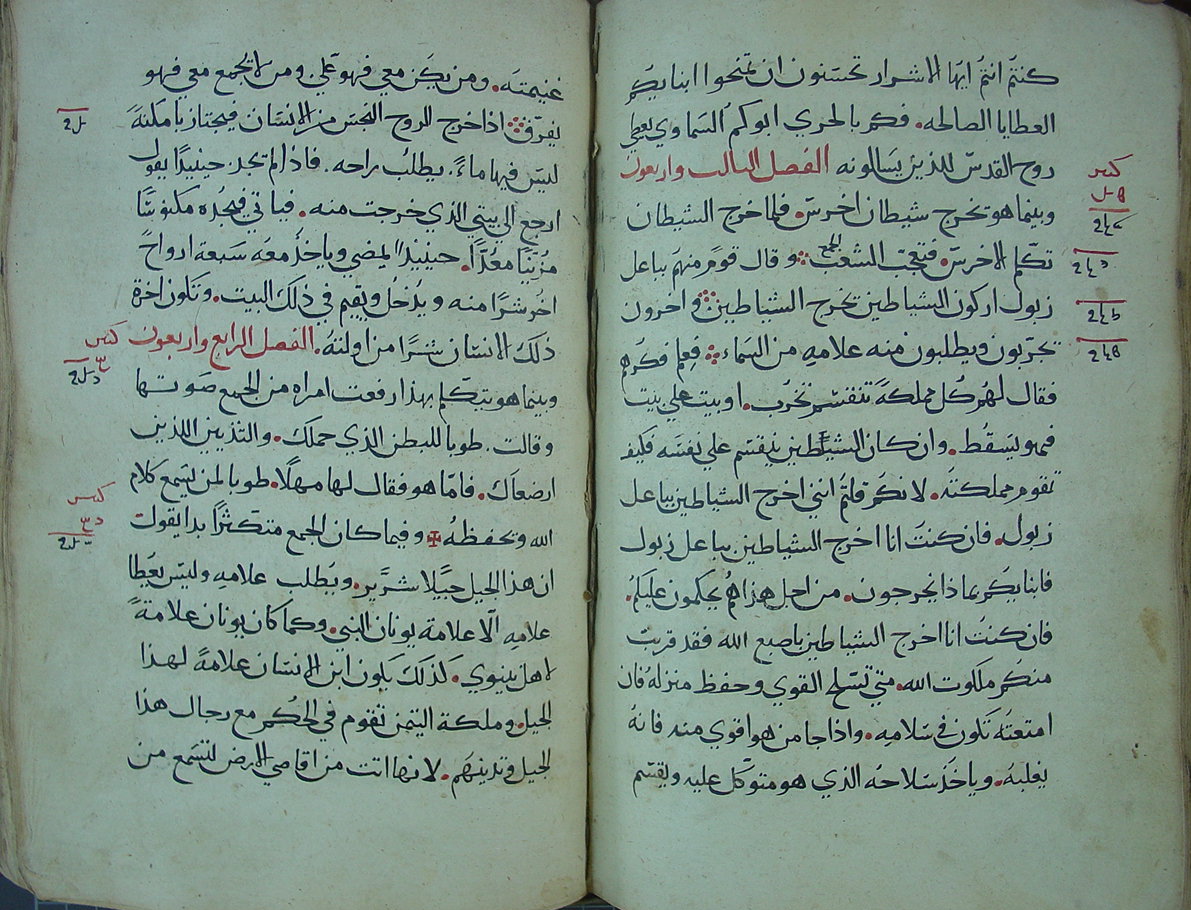 كنتم انتم ايها الاشرار تحسنون ان تمنحوا ابنايكم
العطايا الصالحه. فكم بالحري ابوكم السماوي يعطي
روح القدس للذين يسالونه الفصل التالت واربعون
وبينما هو تخرج شيطان اخرس. فلما خرج الشيطان
تكلم الاخرس. فتعجب الشعب الجمع وقال قوم منهم بباعل
زبول اركون الشياطين تخرج الشياطين واخرون
تجربون ويطلبون منه علامه من السماء فعلم فكرهم
فقال لهم كل مملكة تنقسم تخرب. او بيت علي بيت
فهو يسقط. وان كان الشيطان ينقسم علي نفسه فكيف
تقوم مملكته. لانكم قلتم انني اخرج الشياطين بباعل
زبول. فان كنت انا اخرج الشياطين بباعل زبول
فابنايكم بماذا يخرجون. من اجل هذا هم يحكمون عليكم.
فان كنت انا اخرج الشياطين باصبع الله فقد قربت
منكم ملكوت الله. متي تسلح القوي وحفظ منزله فان
امتعته تكون في سلامه. واذا جا من هو اقوي منه فانه
يغلبه. وياخذ سلاحه الذي هو متوكل عليه ويقسم
كبير
غنيمته. ومن يكن معي فهو علي ومن لا يجمع معي فهو
يفرق اذا خرج الروح النجس من الانسان فيجتاز بامكنة
ليس فيها ماء. يطلب راحه. فاذا لم تجد حينيدا يقول
ارجع الي بيتي الذي خرجت منه. فياتي فيجده مكنوسا
مزينا معدا. حينيدا يمضي وياخذ معه سبعة ارواح
اخر شرا منه ويدخل ويقيم في ذلك البيت. وتكون اخرة
ذلك الانسان شرا من اولته. الفصل الرابع واربعون
وبينما هو يتكلم بهذا رفعت امراه من الجمع صوتها
وقالت. طوبا للبطن الذي حملك. والثديين اللذين
ارضعاك. فاما هو فقال لها مهلا. طوبا لمن يسمع كلام
الله وتحفظه وفيما كان الجمع متكثرا بدا يقول
ان هذا الجيل جيلا شرير. ويطلب علامه وليس يعطا
علامه الا علامة يونان النبي. وكما كان يونان علامة
لاهل نينوي. كذلك يكون ابن الانسان علامة لهذا
الجيل. وملكة التيمن تقوم في الحكم مع رجال هذا
الجيل وتدينهم. لانها اتت من اقاصي الارض لتسمع من